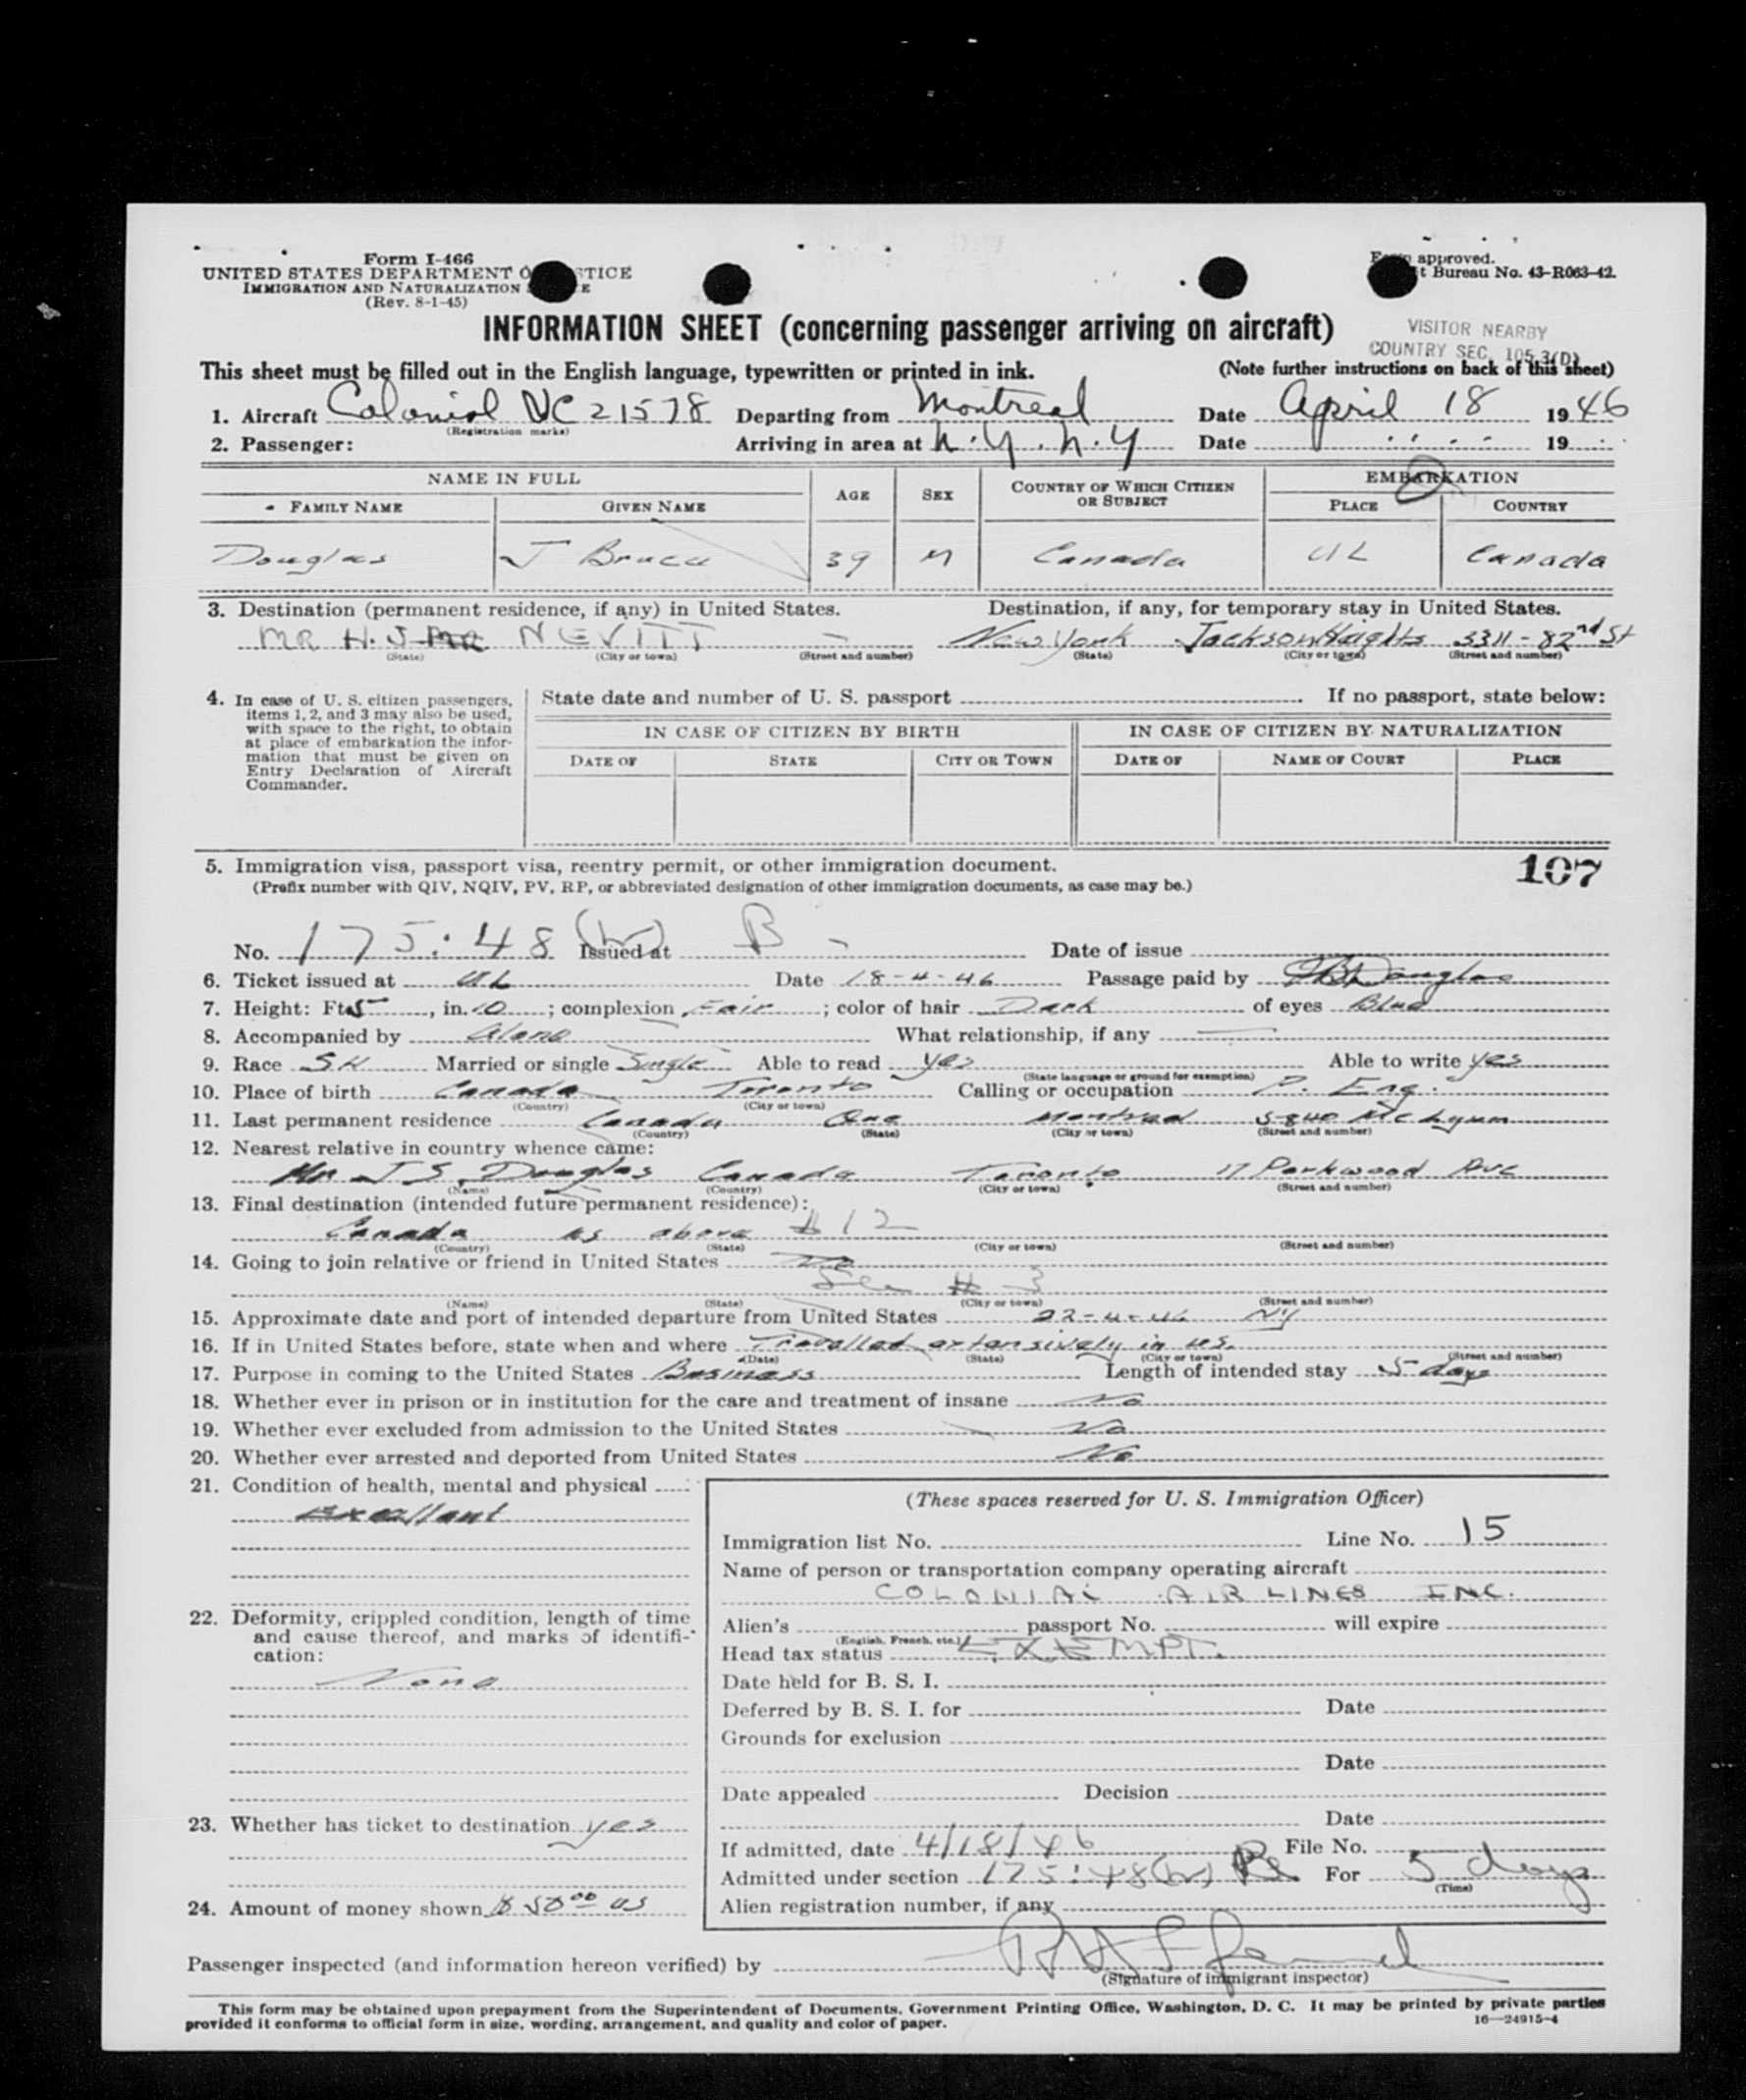 Form I-466
UNITED STATES DEPARTMENT O STICE
IMMIGRATION AND NATURALIZATION E
(Rev. 8-1-45)
approved.
t Bureau No. 43-R063-42.
INFORMATION SHEET (concerning passenger arriving on aircraft)
VISITOR NEARBY
COUNTRY SEC. 105.3(D)
This sheet must be filled out in the English language, typewritten or printed in ink. (Note further instructions on back of this sheet)
1. Aircraft Colonial NC 21578 Departing from Montreal Date April 18 1946
(Registration marks)
2. Passenger: Arriving in area at N.Y.N.Y Date 19
NAME IN FULL AGE SEX COUNTRY OF WHICH CITIZEN OR SUBJECT EMBARKATION
FAMILY NAME GIVEN NAME PLACE COUNTRY
Douglas J Bruce 39 M Canada UL Canada
3. Destination (permanent residence, if any) in United States. Destination, if any, for temporary stay in United States.
MR H. J NEVITT New York Jackson Heights 3311-82nd St
(State) (City or town) (Street and number) (State) (City or town) (Street and number)
4. In case of U. S. citizen passengers, items 1, 2, and 3 may also be used, with space to the right, to obtain at place of embarkation the information that must be given on Entry Declaration of Aircraft Commander.
State date and number of U. S. passport If no passport, state below:
IN CASE OF CITIZEN BY BIRTH IN CASE OF CITIZEN BY NATURALIZATION
DATE OF STATE CITY OR TOWN DATE OF NAME OF COURT PLACE
5. Immigration visa, passport visa, reentry permit, or other immigration document. 107
(Prefix number with QIV, NQIV, PV, RP, or abbreviated designation of other immigration documents, as case may be.)
No. 175:48 (b) Issued at B Date of issue
6. Ticket issued at UL Date 18-4-46 Passage paid by JB Douglas
7. Height: Ft. 5, in. 10; complexion Fair; color of hair Dark of eyes Blue
8. Accompanied by Alone What relationship, if any
9. Race Married or single Single Able to read yes Able to write yes
(State language or ground for exemption)
10. Place of birth Canada Toronto Calling or occupation P. Eng.
(Country) (City or town)
11. Last permanent residence Canada Que Montreal
(Country) (State) (City or town) (Street and number)
12. Nearest relative in country whence came:
Mr J S Douglas Canada Toronto 17 Parkwood Ave
(Name) (Country) (City or town) (Street and number)
13. Final destination (intended future permanent residence):
Canada as above #12
(Country) (State) (City or town) (Street and number)
14. Going to join relative or friend in United States
See # 3
(Name) (State) (City or town) (Street and number)
15. Approximate date and port of intended departure from United States 22-4-46 NY
16. If in United States before, state when and where Travelled extensively in US.
(Date) (State) (City or town) (Street and number)
17. Purpose in coming to the United States Business Length of intended stay 5 days
18. Whether ever in prison or in institution for the care and treatment of insane No
19. Whether ever excluded from admission to the United States No
20. Whether ever arrested and deported from United States No
21. Condition of health, mental and physical
Excellant
22. Deformity, crippled condition, length of time and cause thereof, and marks of identification:
None
23. Whether has ticket to destination yes
24. Amount of money shown $ 50.00 US
(These spaces reserved for U. S. Immigration Officer)
Immigration list No. Line No. 15
Name of person or transportation company operating aircraft
COLONIAL AIR LINES INC.
Alien's passport No. will expire
(English, French, etc.)
Head tax status EXEMPT.
Date held for B. S. I.
Deferred by B. S. I. for Date
Grounds for exclusion
Date
Date appealed Decision
Date
If admitted, date 4/18/46 File No.
Admitted under section 175:48(b) For 5 days
(Time)
Alien registration number, if any
Passenger inspected (and information hereon verified) by
(Signature of immigrant inspector)
This form may be obtained upon prepayment from the Superintendent of Documents, Government Printing Office, Washington, D. C. It may be printed by private parties
provided it conforms to official form in size, wording, arrangement, and quality and color of paper. 16—24915-4